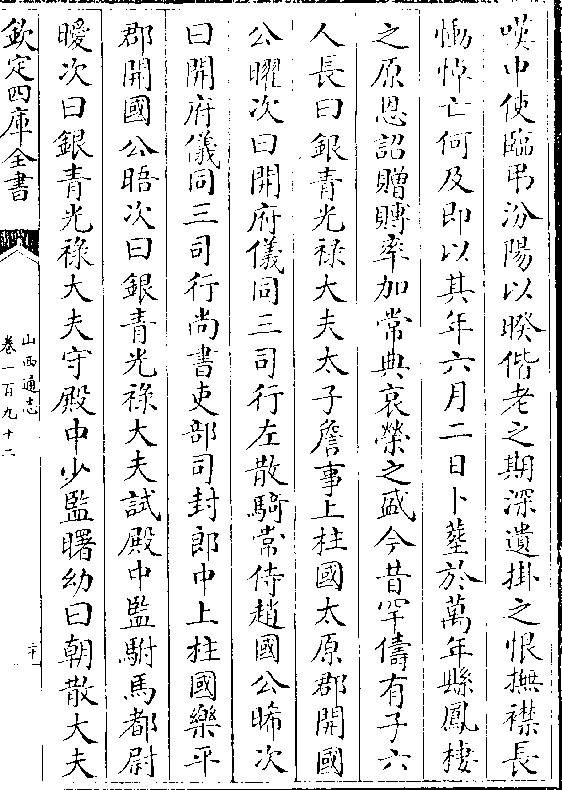 嘆中使臨弔汾陽以暌偕老之期深遺掛之恨撫襟長
慟悼亡何及即以其年六月二日卜塟於萬年縣鳳棲
之原恩詔贈賻率加常典哀榮之盛今昔罕儔有子六
人長曰銀青光禄大夫太子詹事上柱國太原郡開國
公曜次曰開府儀同三司行左散騎常侍趙國公晞次
曰開府儀同三司行尚書吏部司封郎中上柱國樂平
郡開國公晤次曰銀青光禄大夫試殿中監駙馬都尉
曖次曰銀青光禄大夫守殿中少監曙幼曰朝散大夫
欽定四庫全書
山西通志
卷一百九十二